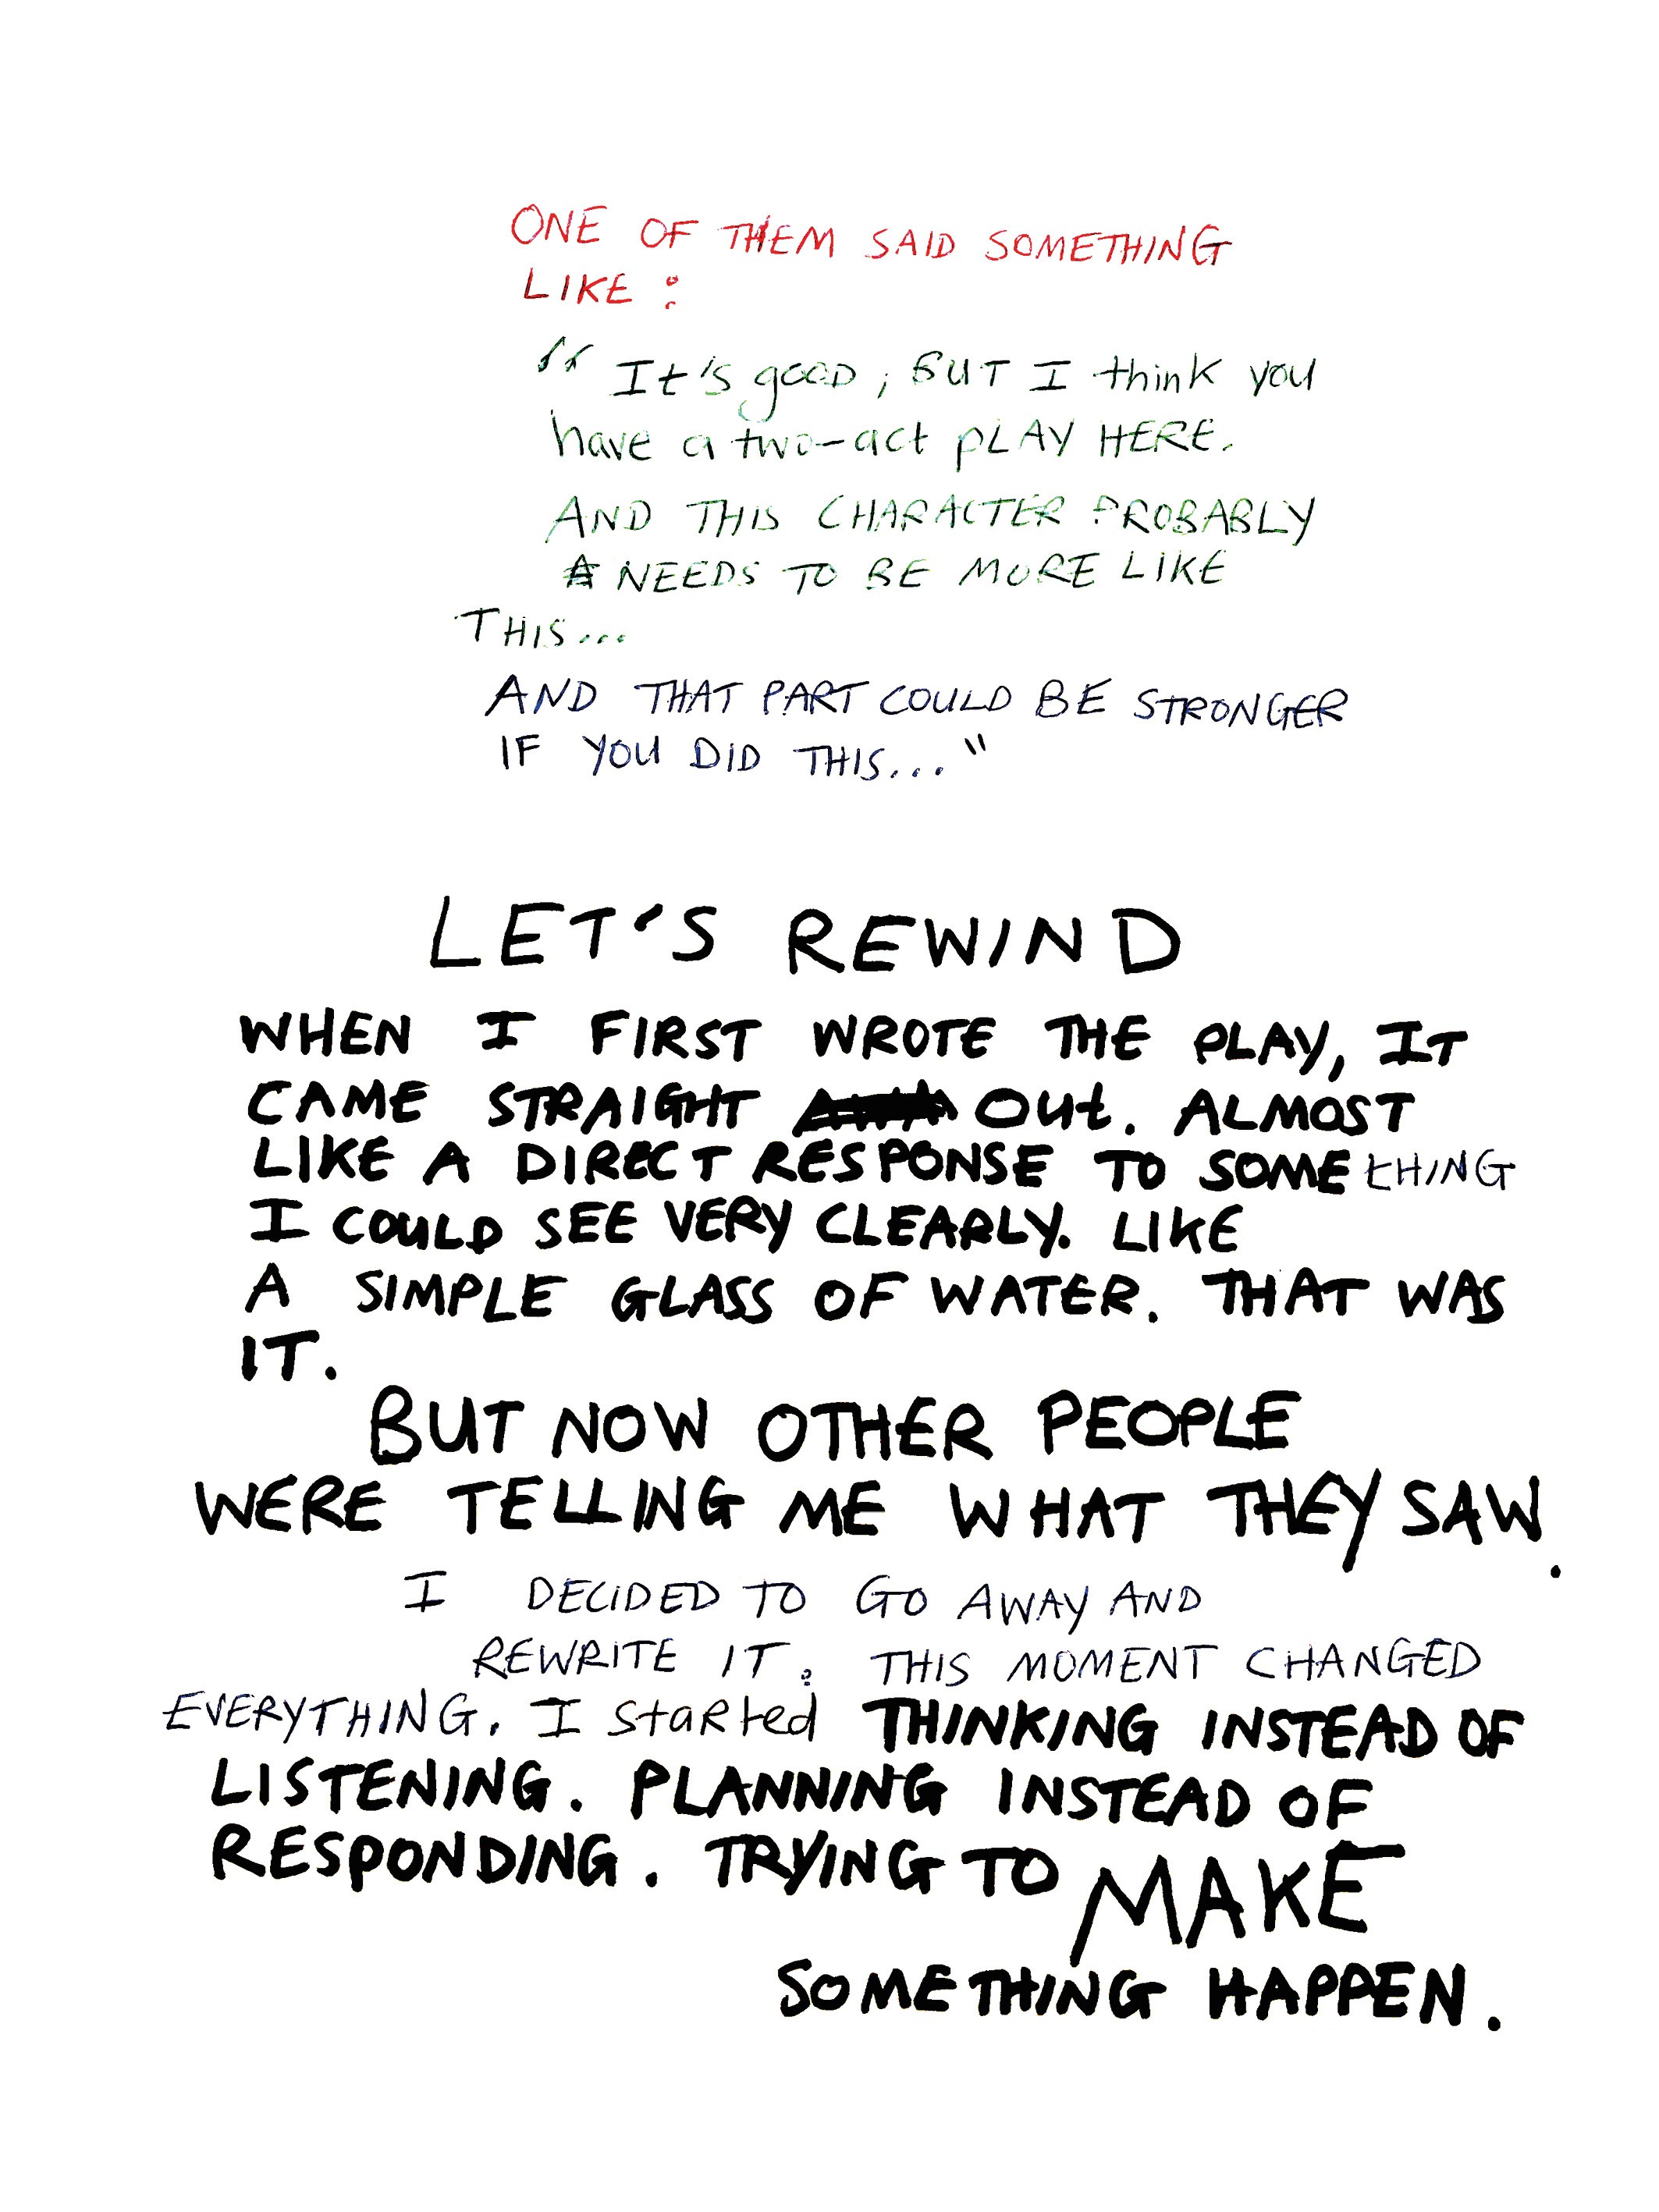 ONE OF THEM SAID SOMETHING
LIKE:
"It's good, BUT I think you
have a two-act PLAY HERE.
AND THIS CHARACTER PROBABLY
NEEDS TO BE MORE LIKE
THIS...
AND THAT PART COULD BE STRONGER
IF YOU DID THIS..."
LET'S REWIND
WHEN I FIRST WROTE THE PLAY, IT
CAME STRAIGHT OUt. ALMOST
LIKE A DIRECT RESPONSE TO SOMEtHING
I COULD SEE VERY CLEARLY. LIKE
A SIMPLE GLASS OF WATER. THAT WAS
IT.
BUT NOW OTHER PEOPLE
WERE TELLING ME WHAT THEY SAW.
I DECIDED TO GO AWAY AND
REWRITE IT. THIS MOMENT CHANGED
EVERYTHING. I StaRted THINKING INSTEAD OF
LISTENING. PLANNING INSTEAD OF
RESPONDING. TRYING TO MAKE
SOMETHING HAPPEN.